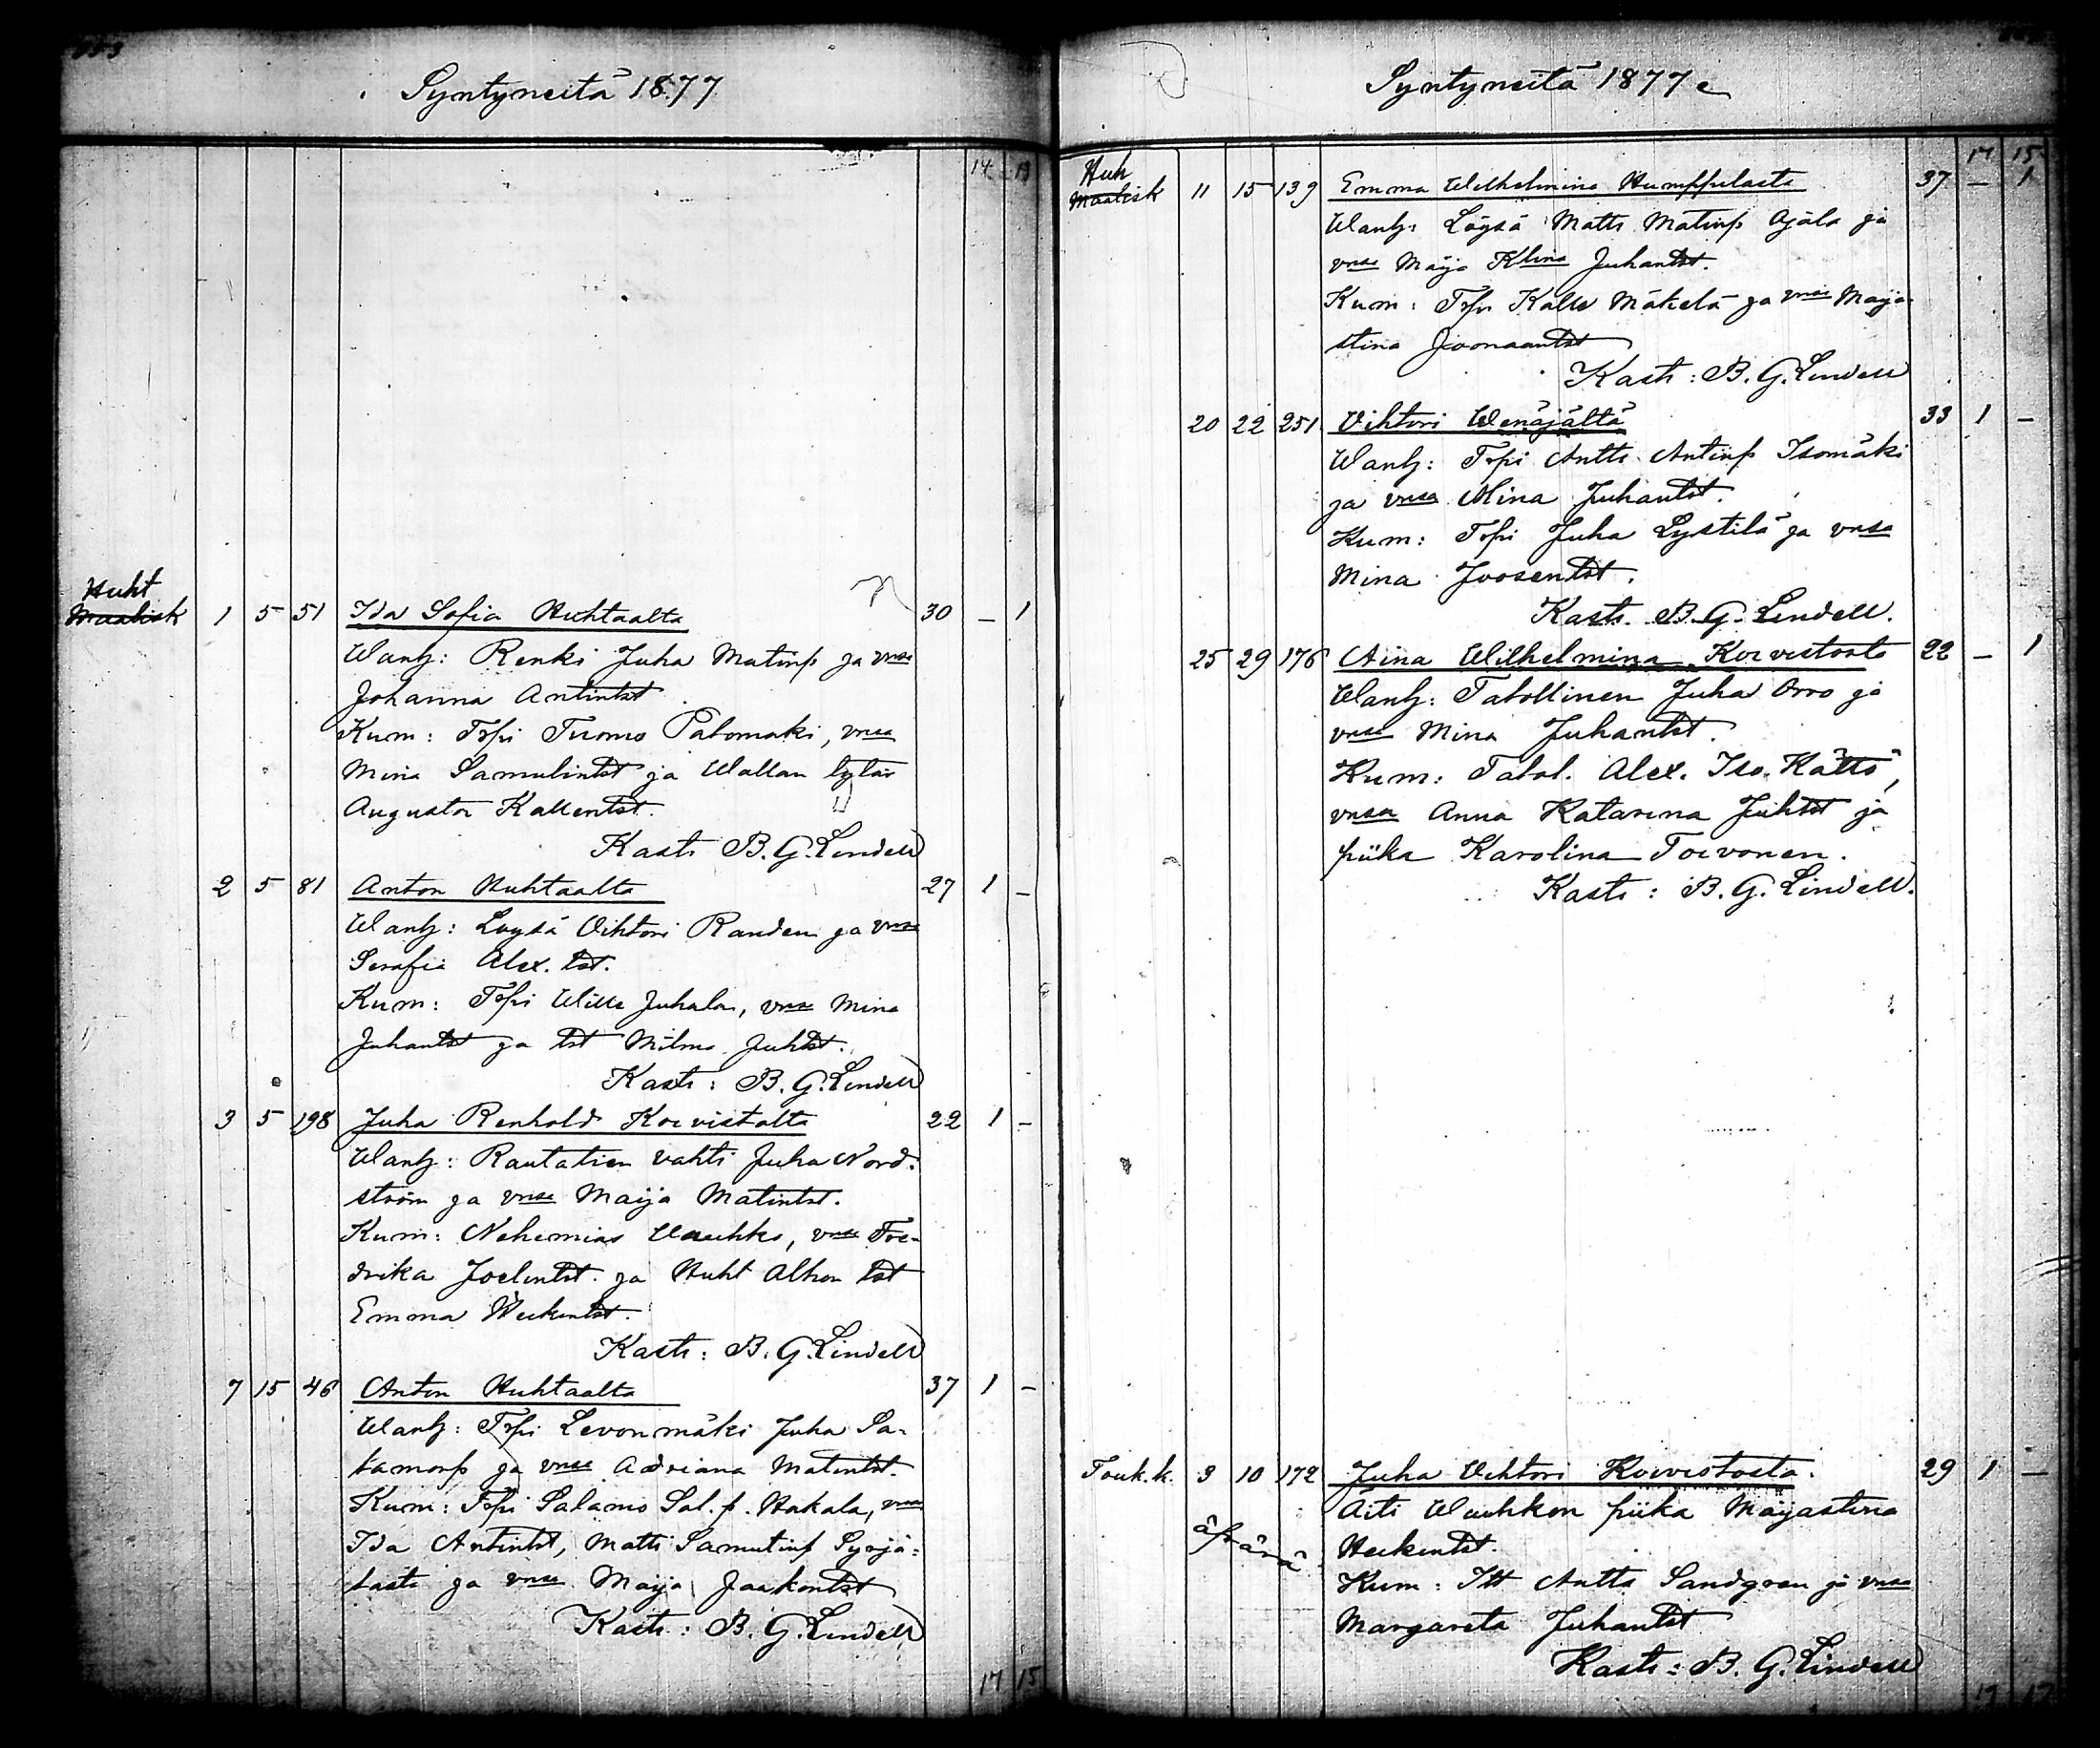 Syntyneitä 1877
14 13
Huht
Maalisk 1 5 51 Ida Sofia Huhtaalta 30 – 1
Wanh: Renki Juha Matinp ja vmsa
Johanna Antintst
Kum: Trpi Tuomo Palomäki, vmsa
Mina Samulintst ja Wallan tytär
Augusta Kallentst.
Kasti B. G. Lindell
2 5 81 Anton Huhtaalta 27 1 –
Wanh: Loysä Vihtori Randen ja vmsa
Serafia Alex. tst.
Kum: Trpi Wille Juhala, vmsa Mina
Juhantst ja tst Milma Juhtst.
Kasti: B. G. Lindell
3 5 198 Juha Renhold Koivistolta 22 1 –
Wanh: Rautatien vahti Juha Nord-
ström ja vmsa Maija Matintst.
Kum: Nehemias Wauhko, vmsa Fre-
drika Joelintst. ja Huht Alhon tst
Emma Heikintst.
Kasti: B. G. Lindell
7 15 46 Anton Huhtaalta 37 1 –
Wanh: Trpi Levonmäki Juha Sa-
lamonp ja vmsa Adriana Matintst.
Kum: Trpi Salamo Sal. p. Hakala, vmsa
Ida Antintst, Matti Samulinp Syrjä-
lästi ja vmsa Maija Jaakontst
Kasti: B. G. Lindell
17 15
Syntyneitä 1877
17 15
Huh
Maalisk 11 15 139 Emma Wilhelmina Humppilasta 37 – 1
Wanh: Löysä Matti Matinp Ojala ja
vmsa Maija Klina Juhantst.
Kum: Trpi Kalle Mäkelä ja vmsa Maija-
stina Joonaantst
Kasti: B. G. Lindell
20 22 251 Vihtori Wenäjältä 33 1 –
Wanh: Trpi Antti Antinp Isomäki
ja vmsa Mina Juhantst.
Kum: Trpi Juha Lystilä ja vmsa
Mina Joosentst.
Kasti. B. G. Lindell.
25 29 176 Aina Wilhelmina Koivistosta 22 – 1
Wanh: Talollinen Juha Orro ja
vmsa Mina Juhantst.
Kum: Talol. Alex. Iso Kättö,
vmsa Anna Katarina Juhtst ja
piika Karolina Toivonen.
Kasti: B. G. Lindell.
Touk. k. 3 10 172 Juha Vihtori Koivistosta. 29 1 –
äpärä
Äiti Wauhkon piika Maijastina
Heikintst.
Kum: Itt Antti Sandgren ja vmsa
Margareta Juhantst
Kasti: B. G. Lindell
17 17